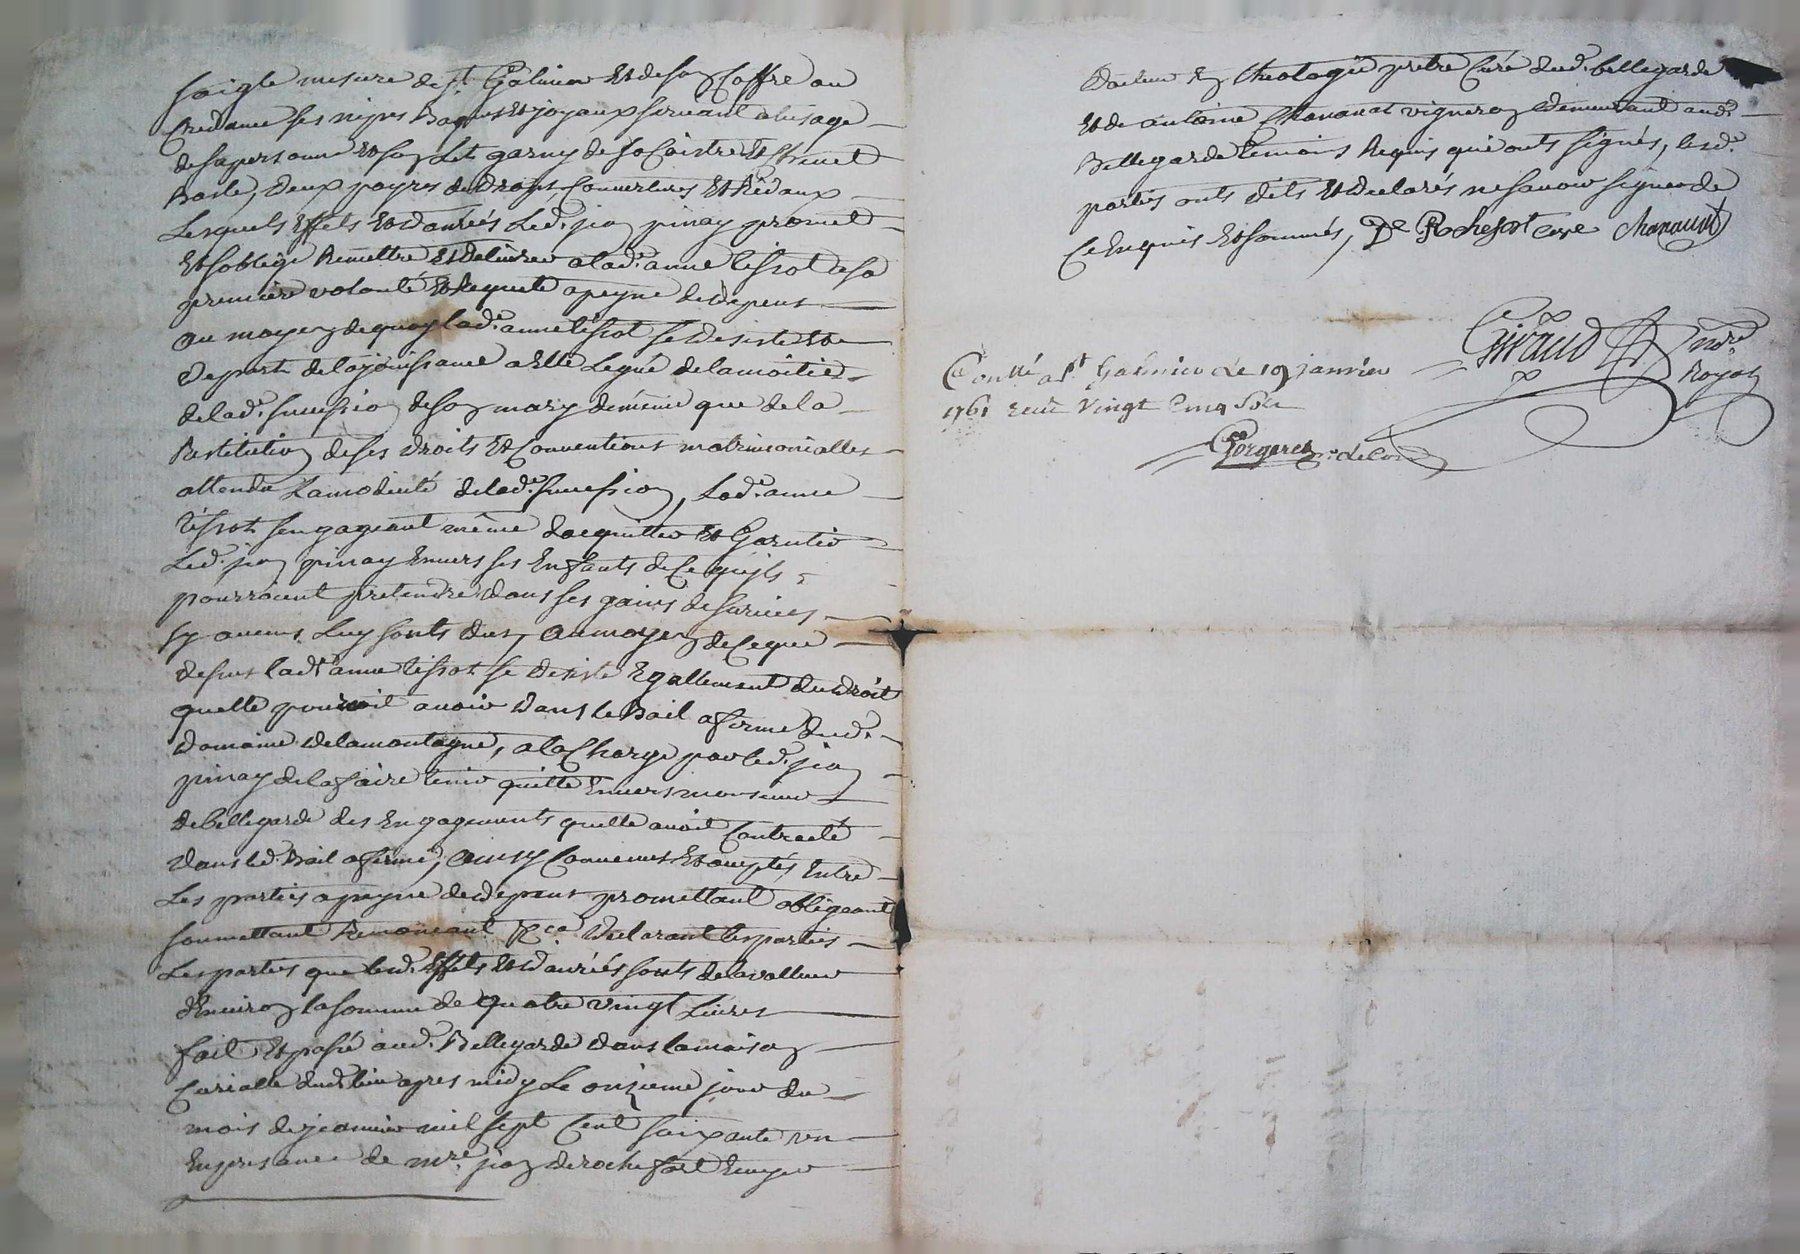 soigle mesure de St Galmier Et de son Coffre ou
Credance ses nipes Bagues Et joyaux servant a lusage
de sa personne Et son Lit garny de so Coistre Et
deux payres de Draps, Couvertures Et Ridaux
Lesquels Effets Et danrées Led. jean pinay promet
Et soblige Remettre Et delivrer a lad. anne tissot a sa
premiere volonté Et Requete a peyne de depens
au moyen de quoy lad. anne tissot se desiste Et
departe de la jouissance a Elle Leguée de la moitiée
de lad. succession de son mary de même que de la
Restitution de ses droits Et Conventions matrimonialles
attendu La modicité de lad. succession, Lad. anne
tissot sengageant même dacquitter Et Garentir
Led. jean pinay Envers ses Enfants de Ce quils
pourroient pretendre dans ses gains de survies
sy aucuns Luy sonts dus, au moyen de Ce que
dessus lad. anne tissot se desiste Egallement du droit
quelle pourroit avoir dans le Bail a ferme dud.
domaine de la montagne, a la Charge par led. jean
pinay de la faire tenir quitte Envers monsieur
de bellegarde des Engagements quelle avoit Contracté
dans led. Bail a ferme, ainsy Convenus Et acceptés Entre
Les parties a peyne de depens promettant obligeant
soumettant Renonceant &ca. declarant les parties
Les parties que lesd. Effets Et danrées sonts de la valleur
dEnviron la somme de quatre vingt Livres
fait Et passé aud. Bellegarde dans la maison
Curialle dud. lieu apres midy Le onzieme jour du
mois de janvier mil sept Cent soixante un
En presance de mre. jean de rochefort Ecuyer
docteur En theologie pretre Curé dud. bellegarde
Et de antoine Chavanat vigneron demeurant aud.
Bellegarde temoins Requis qui onts signés, lesd.
parties onts dits Et declarés ne savoir signer de
Ce Enquis Et sommés, De Rochefort Curé Chavanat
Giraud nore. Royal
Conllé a St Galmier Le 19 janvier
1761 recu Vingt Cinq sols